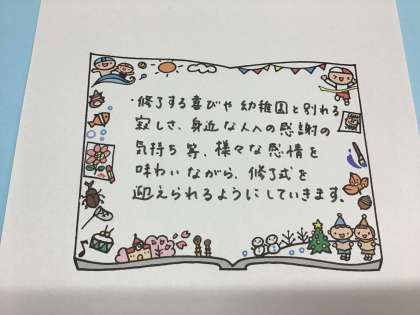 ・修了する喜びや 幼稚園と別れる
寂しさ、身近な人への感謝の
気持ち等、様々な感情を
味わいながら、修了式を
迎えられるようにしていきます。